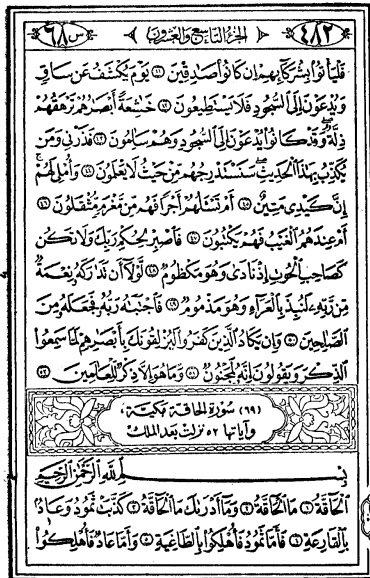 ٤٨٢ ﴿ الجزء التاسع والعشرون ﴾ س ٦٨
فَلْيَأْتُوا۟ بِشُرَكَآئِهِمْ إِن كَانُوا۟ صَٰدِقِينَ ٤١ يَوْمَ يُكْشَفُ عَن سَاقٍ
وَيُدْعَوْنَ إِلَى ٱلسُّجُودِ فَلَا يَسْتَطِيعُونَ ٤٢ خَٰشِعَةً أَبْصَٰرُهُمْ تَرْهَقُهُمْ
ذِلَّةٌ وَقَدْ كَانُوا۟ يُدْعَوْنَ إِلَى ٱلسُّجُودِ وَهُمْ سَٰلِمُونَ ٤٣ فَذَرْنِى وَمَن
يُكَذِّبُ بِهَٰذَا ٱلْحَدِيثِ سَنَسْتَدْرِجُهُم مِّنْ حَيْثُ لَا يَعْلَمُونَ ٤٤ وَأُمْلِى لَهُمْ
إِنَّ كَيْدِى مَتِينٌ ٤٥ أَمْ تَسْـَٔلُهُمْ أَجْرًا فَهُم مِّن مَّغْرَمٍ مُّثْقَلُونَ ٤٦
أَمْ عِندَهُمُ ٱلْغَيْبُ فَهُمْ يَكْتُبُونَ ٤٧ فَٱصْبِرْ لِحُكْمِ رَبِّكَ وَلَا تَكُن
كَصَاحِبِ ٱلْحُوتِ إِذْ نَادَىٰ وَهُوَ مَكْظُومٌ ٤٨ لَّوْلَآ أَن تَدَٰرَكَهُۥ نِعْمَةٌ
مِّن رَّبِّهِۦ لَنُبِذَ بِٱلْعَرَآءِ وَهُوَ مَذْمُومٌ ٤٩ فَٱجْتَبَٰهُ رَبُّهُۥ فَجَعَلَهُۥ مِنَ
ٱلصَّٰلِحِينَ ٥٠ وَإِن يَكَادُ ٱلَّذِينَ كَفَرُوا۟ لَيُزْلِقُونَكَ بِأَبْصَٰرِهِمْ لَمَّا سَمِعُوا۟
ٱلذِّكْرَ وَيَقُولُونَ إِنَّهُۥ لَمَجْنُونٌ ٥١ وَمَا هُوَ إِلَّا ذِكْرٌ لِّلْعَٰلَمِينَ ٥٢
(٦٩) سورة الحاقة مكية
وآياتها ٥٢ نزلت بعد الملك
بِسْمِ ٱللَّهِ ٱلرَّحْمَٰنِ ٱلرَّحِيمِ
ٱلْحَآقَّةُ ١ مَا ٱلْحَآقَّةُ ٢ وَمَآ أَدْرَىٰكَ مَا ٱلْحَآقَّةُ ٣ كَذَّبَتْ ثَمُودُ وَعَادٌۢ
بِٱلْقَارِعَةِ ٤ فَأَمَّا ثَمُودُ فَأُهْلِكُوا۟ بِٱلطَّاغِيَةِ ٥ وَأَمَّا عَادٌ فَأُهْلِكُوا۟